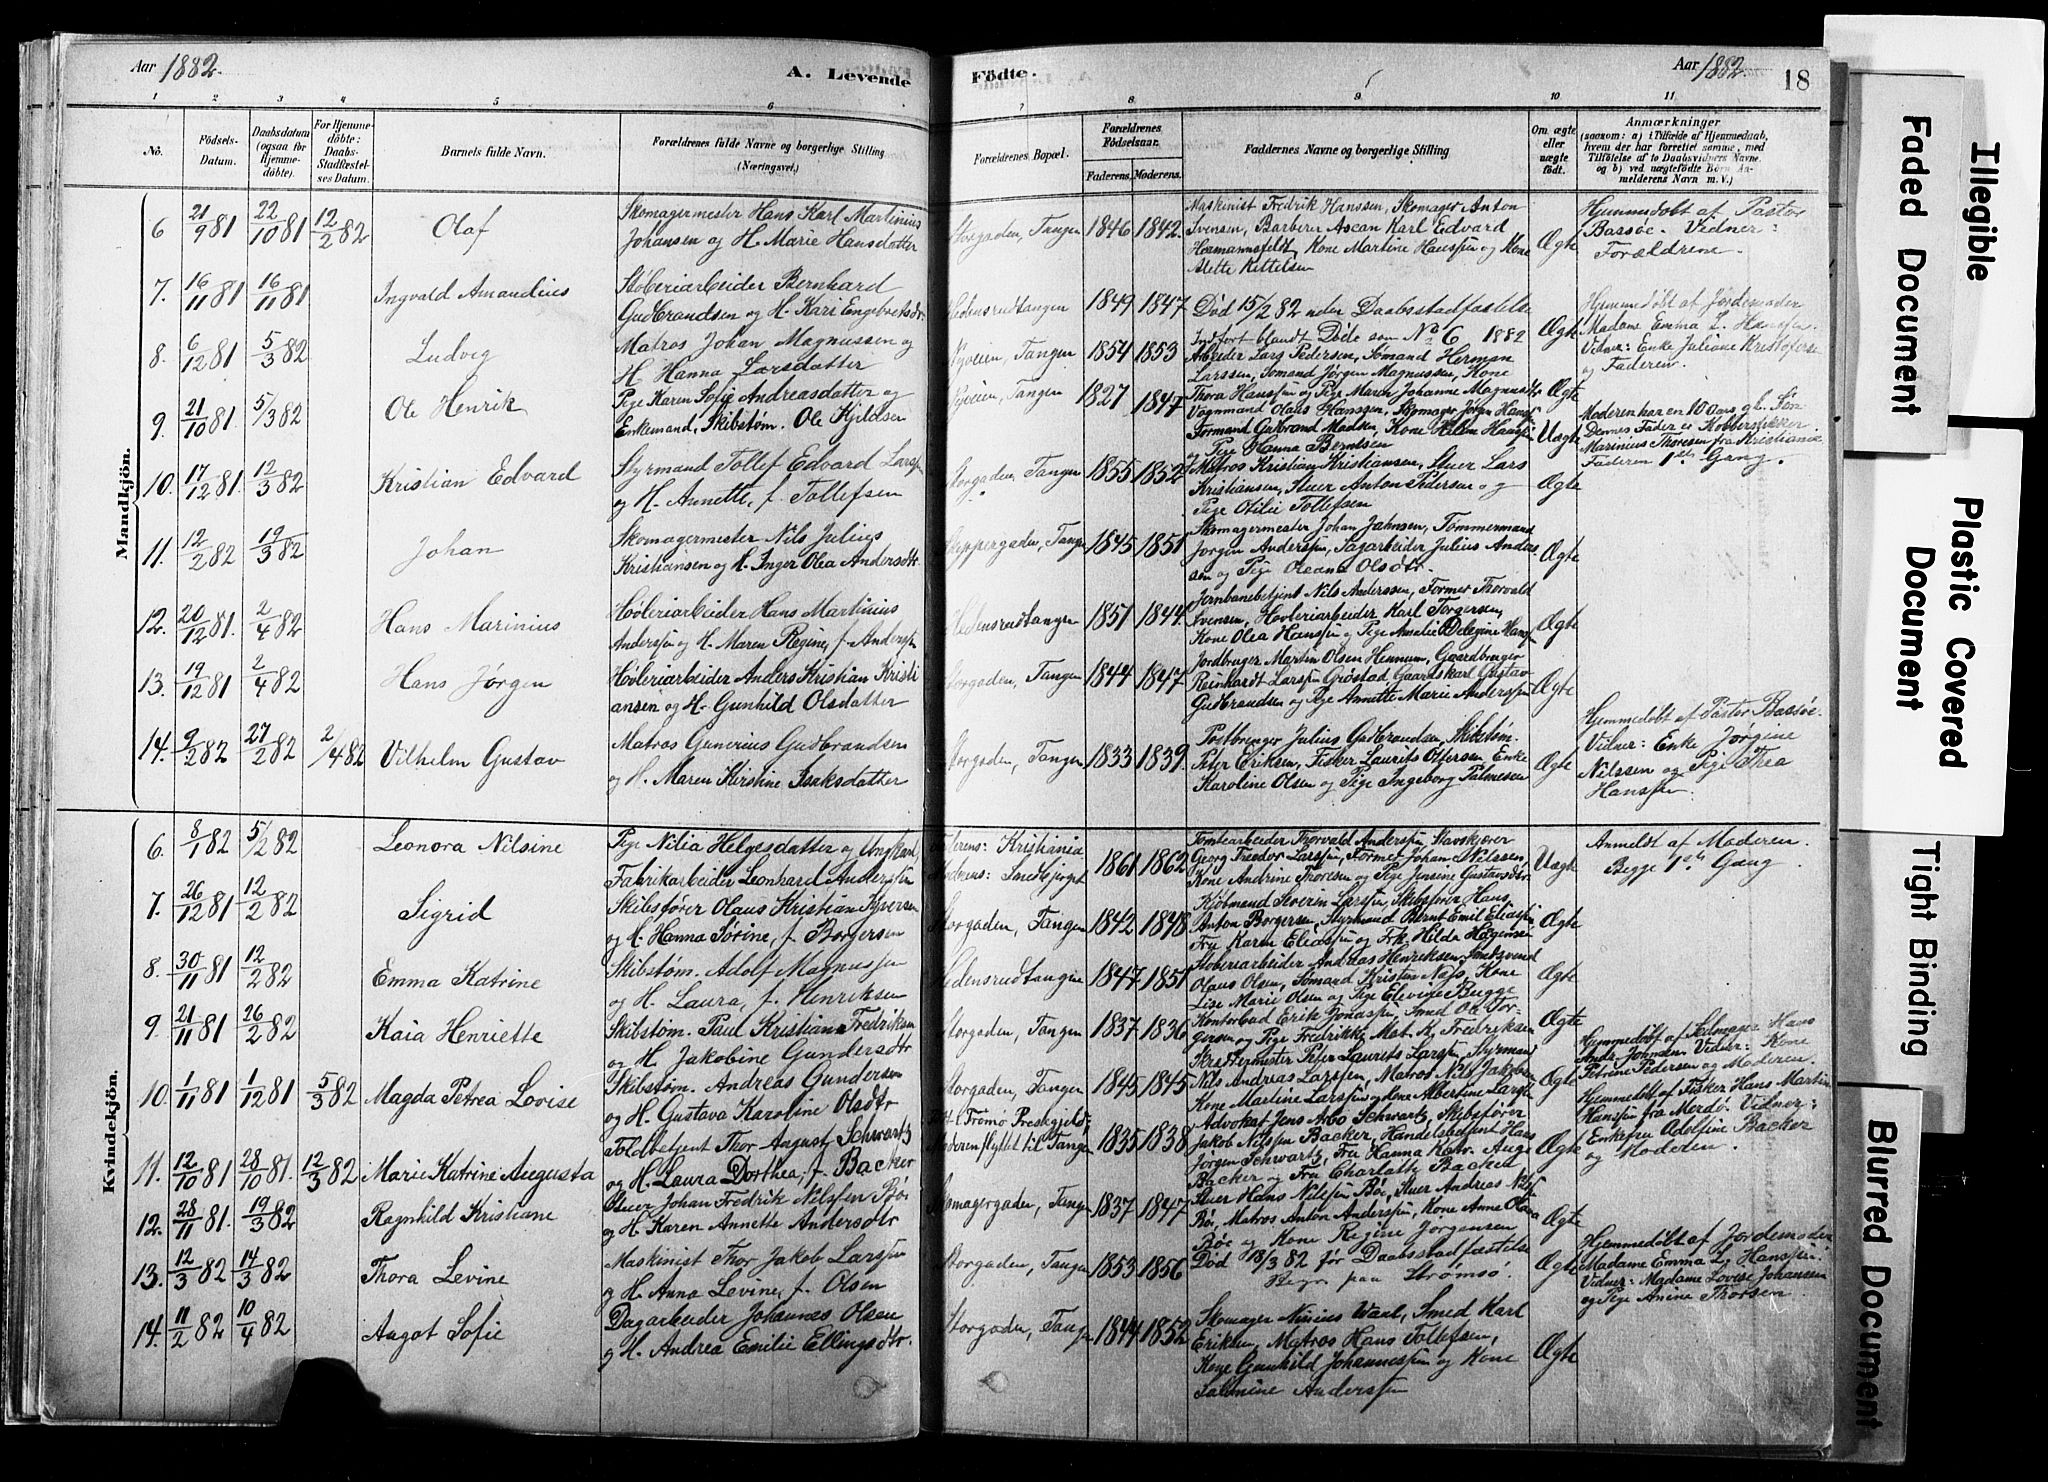 Aar 1882.
A. Levende
Födte.
Aar 1882.
18
1 2 3 4 5 6 7 8 9 10 11
No.
Födsels-
Datum.
Daabsdatum
(ogsaa for
Hjemme-
döbte).
For Hjemme-
döbte:
Daabs-
Stadfæstel-
ses Datum.
Barnets fulde Navn.
Forældrenes fulde Navne og borgerlige Stilling
(Næringsvei.)
Forældrenes Bopæl.
Forældrenes
Födselsaar.
Faderens. Moderens.
Faddernes Navne og borgerlige Stilling
Om ægte
eller
uægte
födt.
Anmærkninger
(saasom: a) i Tilfælde af Hjemmedaab,
hvem der har forrettet samme, med
Tilföielse af to Daabsvidners Navne,
og b) ved uægtefödte Börn An-
melderens Navn m. V.)
Mandkjön.
6 21/9 81 22/10 81 12/2 82 Olaf
Skomagermester Hans Karl Martinius
Johansen og H. Marie Hansdatter
Storgaden, Tangen 1846 1842.
Maskinist Fredrik Hanssen, Skomager Anton
Svensen, Barberer Ascan Karl Edvard
Hermannsfeldt, Kone Martine Hanssen og Kone
Mette Kittelsen
Ægte
Hjemmedøbt af Pastor
Bassøe. Vidner:
Forældrene.
7. 16/11 81 16/11 81 Ingvald Amandius
Støberiarbeider Bernhard
Gudbrandsen og H. Kari Engebretsdr.
Hedensrudtangen 1849 1847
Død 15/2 82 uden Daabsstadfæstelse
Indført blandt Døde som No 6 1882
Ægte
Hjemmedøbt af Jordemoder
Madame Emma L. Hanssen.
Vidner: Enke Juliane Kristofersen
og Faderen.
8. 6/12 81 5/3 82 Ludvig
Matros Johan Magnussen og
H. Hanna Larsdatter
Nyveien, Tangen 1854 1853
Arbeider Lars Pedersen, Sømand Herman
Larssen, Sømand Jørgen Magnussen, Kone
Thora Hanssen og Pige Maren Johanne Magnusdtr
Ægte
9. 21/10 81 5/3 82 Ole Henrik
Pige Karen Sofie Andreasdatter og
Enkemand, Skibstøm. Ole Kjeldsen
Nyveien, Tangen 1827 1847
Vognmand Olaus Hanssen, Skomager Jørgen Hanssen
Formand Gudbrand Madsen, Kone Helene Hanssen
og Pige Hanna Berntsen
Uægte
Moderen har en 10 Aars gl. Søn
Dennes Fader er Kobberstikker
Marinius Thoresen fra Kristiania
Faderen 1ste Gang.
10. 17/12 81. 12/3 82 Kristian Edvard
Styrmand Tollef Edvard Larssen
og H. Annette, f. Tollefsen
Storgaden, Tangen 1855 1852
Matros Kristian Kristiansen, Stuer Lars
Kristiansen, Stuer Anton Pedersen og
Pige Otilie Tollefsen
Ægte
11. 12/2 82 19/3 82 Johan
Skomagermester Nils Julius
Kristiansen og H. Inger Olea Andersdtr.
Skippergaden, Tangen 1845 1851
Skomagermester Johan Jahnsen, Tømmermand
Jørgen Anderssen, Sagarbeider Julius Anders-
sen og Pige Oleana Olsdtr.
Ægte
12. 20/12 81. 2/4 82 Hans Marinius
Høvleriarbeider Hans Martinius
Anderssen og H. Maren Regine, f. Anderssen
Hedensrudtangen 1851 1844.
Jernbanebetjent Nils Anderssen, Former Thorvald
Svensen, Høvleriarbeider Karl Torgersen,
Kone Olea Hanssen og Pige Amalie Delegine Hanss.
Ægte
13. 19/12 81 2/4 82 Hans Jørgen
Høvleriarbeider Anders Kristian Kristi-
ansen og H. Gunhild Olsdatter
Storgaden, Tangen 1844 1847
Jordbruger Martin Olsen Hennum, Gaardbruger
Reinhardt Larssen Grøstad, Gaardskarl Gustav
Gudbrandsen og Pige Annette Marie Anderssen
Ægte
14. 9/2 82 27/2 82 2/4 82 Vilhelm Gustav
Matros Gunerius Gudbrandsen
og H. Maren Kirstine Isaksdatter
Storgaden, Tangen 1833 1839.
Postbringer Julius Gudbrandsen, Skibstøm.
Peter Eriksen, Fisker Laurits Ottersen, Enke
Karoline Olsen og Pige Ingeborg Palmesen
Ægte
Hjemmedøbt af Pastor Bassøe.
Vidner: Enke Jørgene
Nilssen og Pige Thea
Hanssen.
Kvindekjön.
6. 8/1 82 5/2 82 Leonora Nilsine
Pige Nilia Helgesdatter og Ungkarl,
Fabrikarbeider Leonhard Anderssen
Faderens: Kristiania
Moderens: Smedbjerget 1861 1862
Tomtearbeider Thorvald Anderssen, Stavskjærer
Georg Theodor Larssen, Former Johan Nilssen,
Kone Andrine Thoresen og Pige Jensine Gustavsdtr.
Uægte
Anmeldt af Moderen.
Begge 1ste Gang
7. 26/12 81 12/2 82 Sigrid
Skibsfører Olaus Kristian Syversen
og H. Hanna Sørine, f. Borgersen
Storgaden, Tangen 1842 1848
Kjøbmand Severin Larssen, Skibsfører Hans
Anton Borgersen, Styrmand Bernt Emil Eliassen
Fru Karen Eliassen og Frk. Hilda Hagensen
Ægte
8. 30/11 81 12/2 82 Emma Katrine
Skibstøm. Adolf Magnussen
og H. Laura, f. Henriksen
Hedensrudtangen 1847 1851
Støberiarbeider Andreas Henriksen,
Olaus Olsen, Sømand Kristen Næss, Kone
Lise Marie Olsen og Pige Elevine Bugge
Ægte
9. 21/11 81 26/2 82 Kaia Henriette
Skibstøm. Paul Kristian Fredriksen
og H. Jakobine Gundersdtr
Storgaden, Tangen 1837 1836
Kontorbud Erik Jonassen, Smed Ole Tor-
gersen og Pige Fredrikke Mat. K. Fredriksen
Ægte
10. 1/11 81 1/12 81 5/3 82 Magda Petrea Lovise
Skibstøm. Andreas Gundersen
og H. Gustava Karoline Olsdtr
Storgaden, Tangen 1845 1845
Skrædermester Peter Laurits Larssen, Styrmand
Nils Andreas Larssen, Matros Nils Jakobsen
Kone Martine Larssen og Kone Albertine Larssen
Ægte
Hjemmedøbt af Seilmager Hans
Andr. Johnsen. Vidner: Kone
Petrine Pedersen og Moderen.
11. 12/10 81 28/10 81. 12/3 82 Marie Katrine Augusta
Toldbetjent Thor August Schwartz
og H. Laura Dorthea, f. Backer
Tromø Præstegjeld.
Moderen flyttet til Tangen 1835 1838
Advokat Jens Arbo Schwartz, Skibsfører
Jakob Nilssen Backer, Handelsbetjent Hans
Jørgen Schwartz, Fru Hanna Katr. Aug.
Backer og Fru Charlotte Backer
Ægte
Hjemmedøbt af Fisker Hans Martin
Hanssen fra Merdø. Vidner:
Enkefru Adolfine Backer
og Moderen.
12. 28/11 81. 19/3 82 Ragnhild Kristiane
Stuer Johan Fredrik Nilssen Bøe
og H. Karen Annette Andersdtr
Skomagergaden, Tangen 1837 1847
Stuer Hans Nilssen Bøe, Stuer Andreas Nilss.
Bøe, Matros Anton Anderssen, Kone Anne Olava
Bøe og Kone Regine Jørgensen
Ægte
13. 12/3 82 14/3 82 Thora Levine
Maskinist Thor Jakob Larssen
og H. Anna Levine, f. Olsen
Storgaden, Tangen 1853 1856
Død 18/3 82 før Daabsstadfæstelse
Begr. paa Strømsø.
Ægte
Hjemmedøbt af Jordemoder
Madame Emma L. Hanssen.
Vidner: Madame Lovise Johansen
og Pige Anine Thorsen.
14. 11/2 82 10/4 82 Aagot Sofie
Dagarbeider Johannes Olsen
og H. Andrea Emilie Ellingsdtr.
Storgaden, Tangen 1844 1852
Skomager Ninius Waal, Smed Karl
Eriksen, Matros Hans Tollefsen,
Kone Gunhild Johannessen og Kone
Salmine Anderssen
Ægte
Illegible
Faded Document
Plastic Covered
Document
Tight Binding
Blurred Document